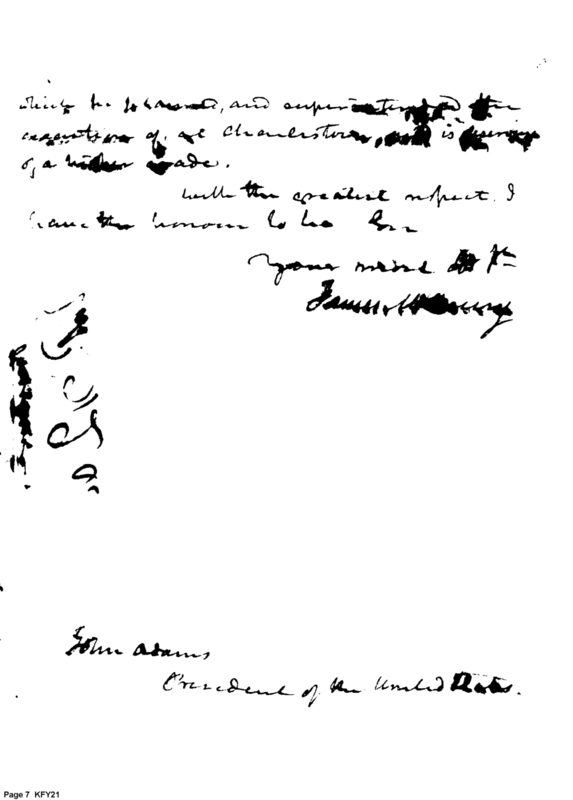 which he planned, and superintended the
execution of, at Charlestown, and is
of a higher grade.
with the greatest respect, I
have the honour to be Sir
your most
James McHenry
John Adams
President of the United States.
Page 7 KFY21